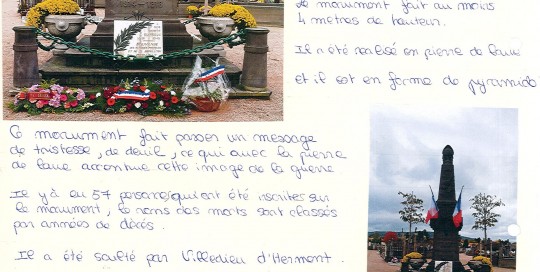 le monument fait au moins
4 metres de hauteur.
Il a été réalisé en pierre de lave
et il est en forme de pyramide
Ce monument fait passer un message
de tristesse, de deuil, ce qui avec la pierre
de lave accentue cette image de la guerre
Il y à eu 57 personnes qui ont été inscrites sur
le monument, le noms des morts sont classés
par années de décés.
Il a été sculté par Villedieu d'Herment.